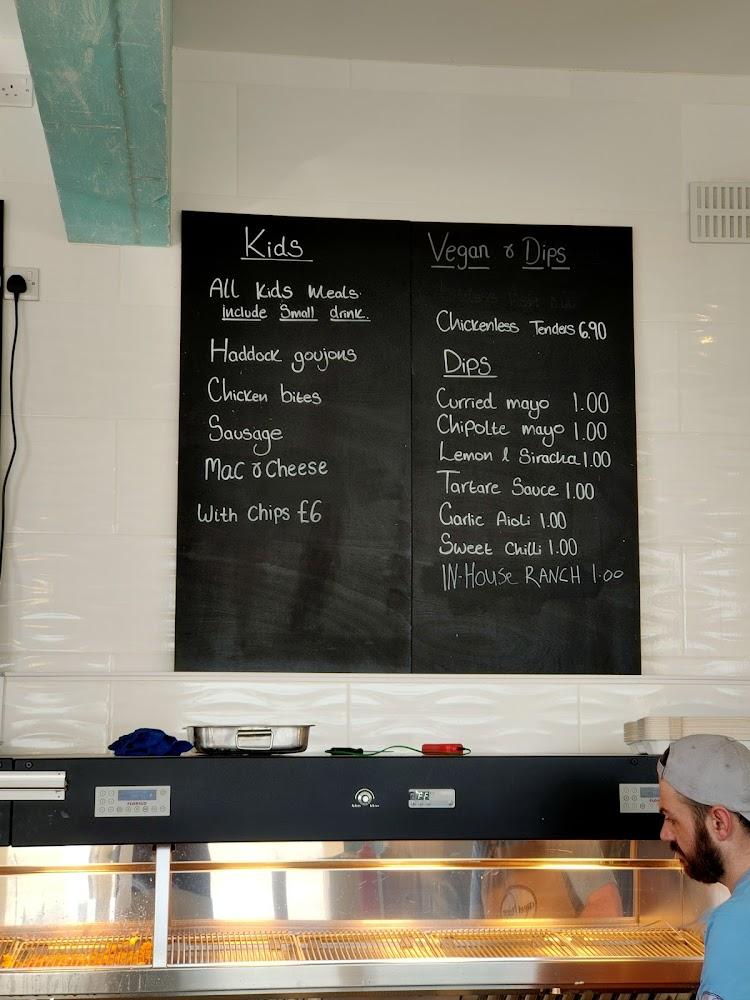 Kids
All Kids Meals.
Include Small drink.
Haddock goujons
Chicken bites
Sausage
Mac & Cheese
With Chips £6
Vegan & Dips
Chickenless Tenders 6.90
Dips
Curried mayo 1.00
Chipolte mayo 1.00
Lemon & Siracha 1.00
Tartare Sauce 1.00
Garlic Aioli 1.00
Sweet Chilli 1.00
IN-HOUSE RANCH 1.00